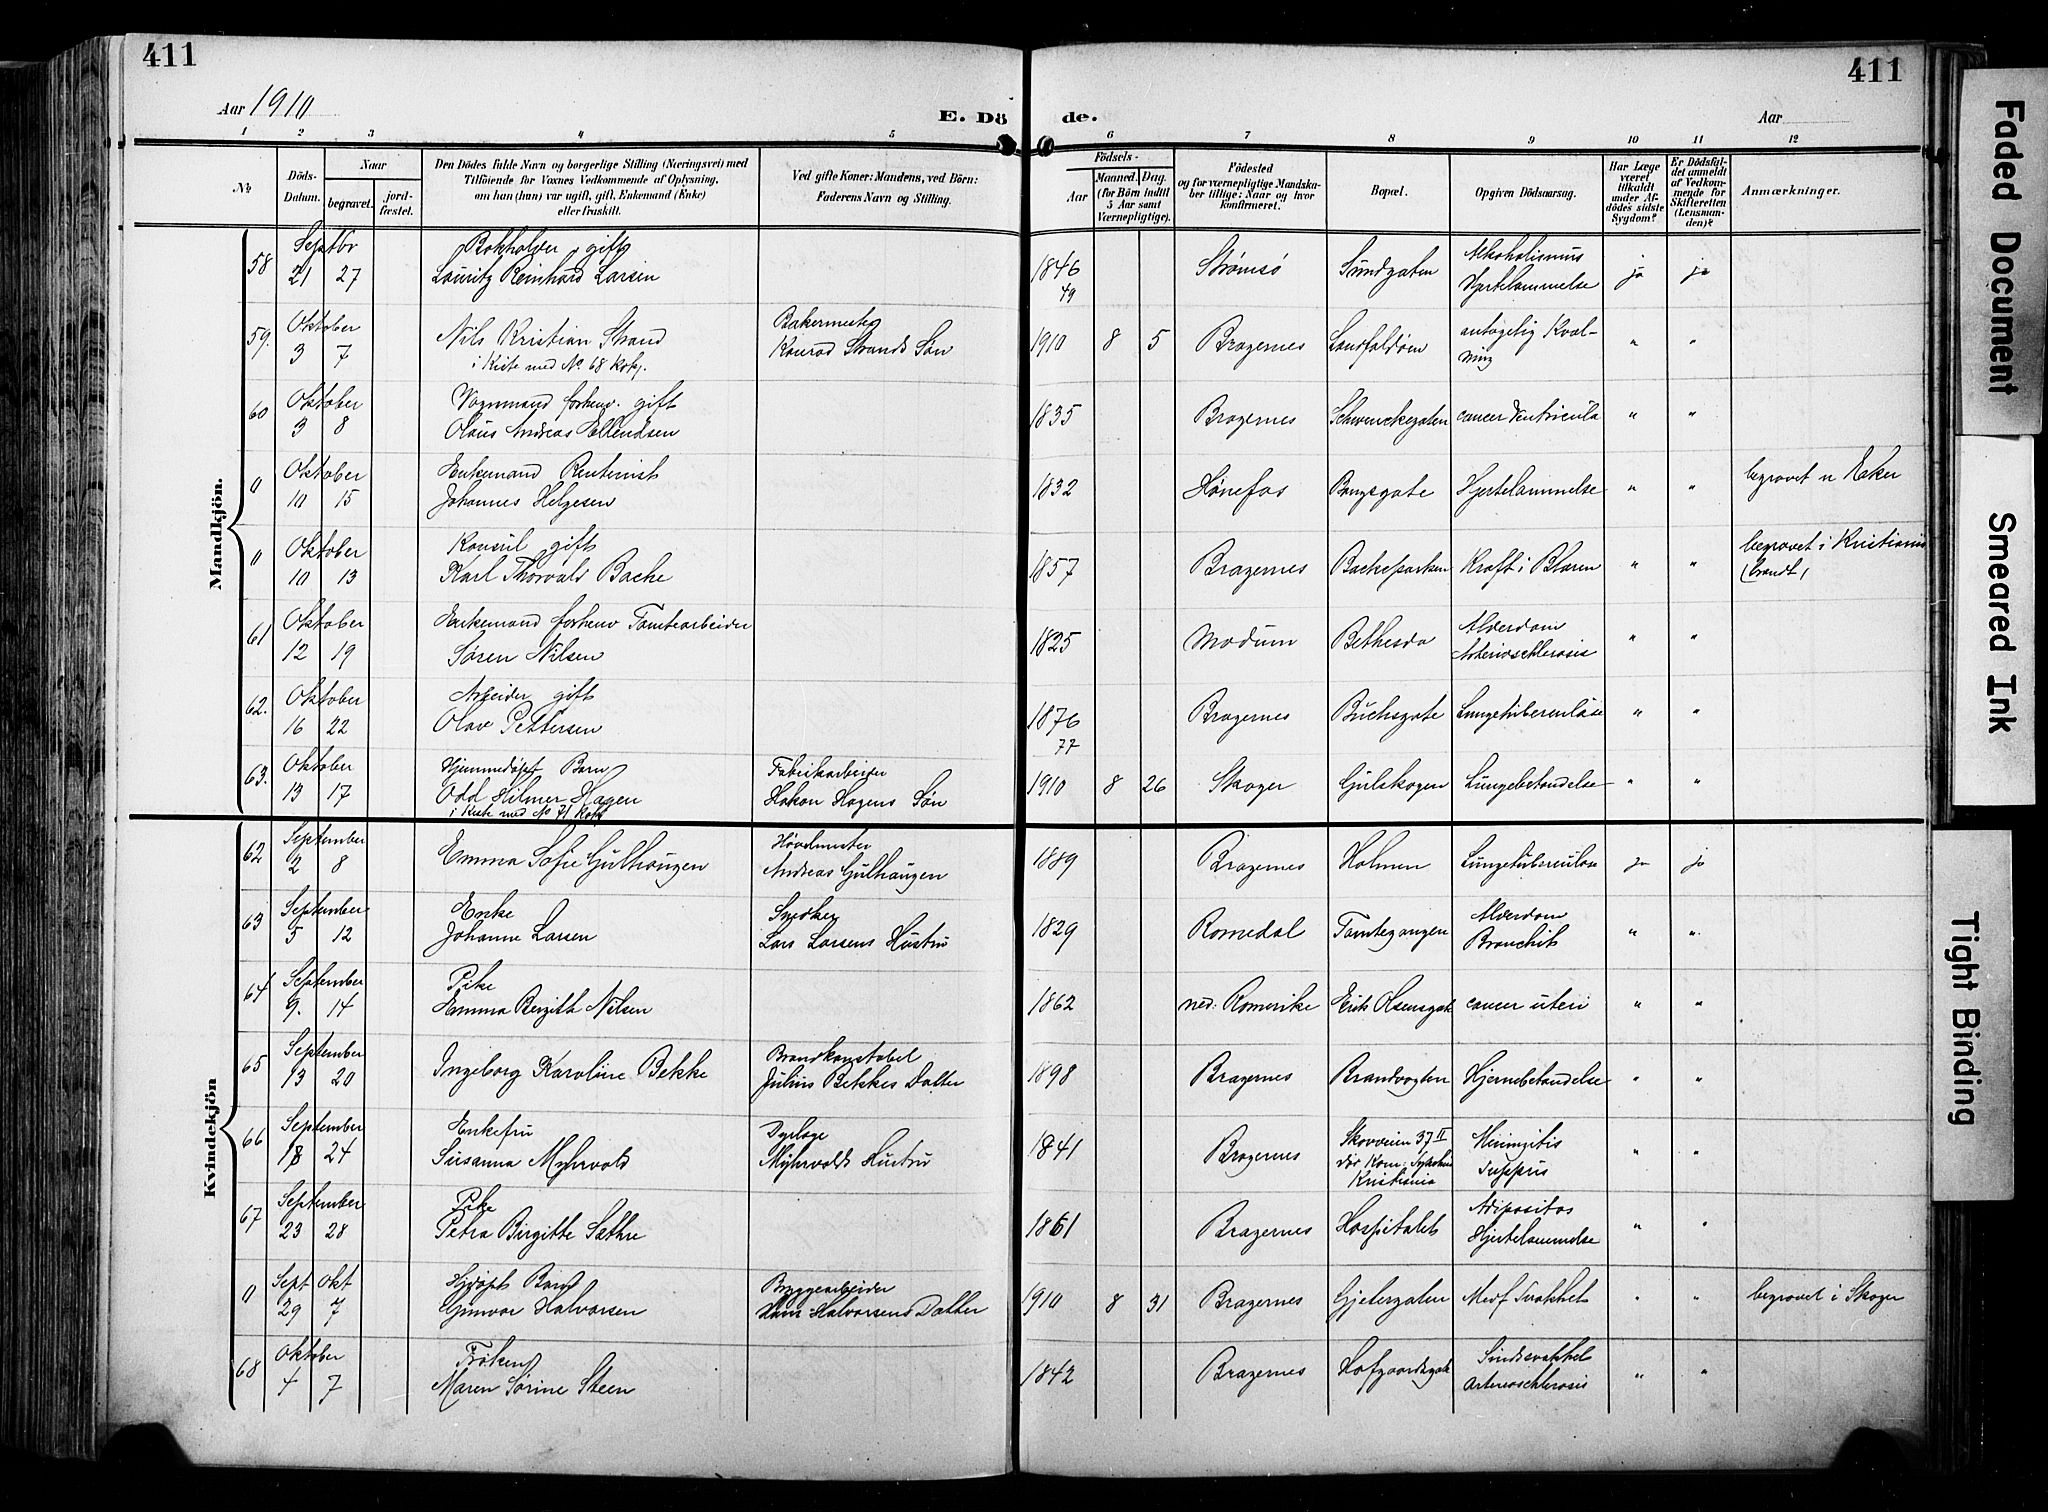 411
411
Aar 1910
E. Dö
de.
Aar
1 2 3 4 5 6 7 8 9 10 11 12
No
Döds-Datum.
Naar
begravet.
jord-fæstet.
Den Dödes fulde Navn og borgerlige Stilling (Næringsvei) med
Tilföiende for Voxnes Vedkommende af Oplysning,
om han (hun) var ugift, gift, Enkemand (Enke)
eller fraskilt.
Ved gifte Koner: Mandens, ved Börn:
Faderens Navn og Stilling.
Födsels-
Aar
Maaned. Dag.
(for Börn indtil 5 Aar samt Værnepligtige).
Födested
og for værnepligtige Mandska-
ber tillige: Naar og hvor
konfirmeret.
Bopæl.
Opgiven Dödsaarsag.
Har Læge været tilkaldt under Af-dödes sidste Sygdom?
Er Dödsfal-det anmeldt af Vedkom-mende for Skifteretten (Lensman-den)?
Anmærkninger.
Mandkjön.
58 Septbr 21 27 gift Lauritz Reinhard Larsen 1846 49 Strømsø Sundgaten Alkoholismus Hjertelammelse ja ja
59. Oktober 3 7 Nils Kristian Strand i Kiste med No 68 Bakermester Konrad Strands Søn 1910 8 5 Bragernes Landfaldøen antagelig Kvæl-ning " "
60 Oktober 3 8 Vognmand forhenv. gift Olaus Andreas Ellendsen 1835 Bragernes Schwenckegaten cancer Ventricula " "
0 Oktober 10 15 Enkemand Rentenist Johannes Helgesen 1832 Hønefos Bangsgate Hjertelammelse " " begravet n Eker
0 Oktober 10 13 Konsul gift Karl Thorvald Bache 1857 Bragernes Bacheparken Kræft i Blæren " " begravet i Kristiania (brændt)
61 Oktober 12 19 Enkemand forhenv Tomtearbeider Søren Nilsen 1825 Modum Bethesda Alderdom Arterioschlerosis " "
62. Oktober 16 22 Arbeider gift Olav Pettersen 1876 77 Bragernes Buchsgate Lungetuberculøse " "
63. Oktober 13 17 Hjemmedøpt Barn Odd Hilmer Hagen i Kiste med No 71 Fabrikarbeider Hakon Hagens Søn 1910 8 26 Skoger Gulskogen Lungebetændelse " "
Kvindekjön
62 September 2 8 Emma Sofie Gulhaugen Høvelmester Andreas Gulhaugen 1889 Bragernes Holmen Lungetuberculøse ja ja
63 September 5 12 Enke Johanne Larsen Snedker Lars Larsens Hustru 1829 Romedal Tomtegangen Alderdom Bronchit " "
64 September 9. 14 Pike Emma Bergith Nilsen 1862 ned: Romerike Erik Olsensgate cancer uteri " "
65 September 13 20 Ingeborg Karoline Bekke Brandkonstabel Julius Bekkes Datter 1898 Bragernes Brandvagten Hjernebetændelse " "
66 September 18 24 Enkefru Susanna Myhrvold Dyrlæge Myhrvolds Hustru 1841 Bragernes Skovveien 37 II Kristiania Meningitis " "
67 September 23 28 Pike Petra Birgitte Sæthre 1861 Bragernes Hospitalet Adipositas Hjertelammelse " "
0 Sept Okt 29 7 Hjdøpt Barn Gunvor Halvorsen Byggearbeider Hans Halvorsens Datter 1910 8 31 Bragernes Gjetergaten Medf Svakhet " " begravet i Skoger
68 Oktober 4 7 Frøken Maren Sørine Steen 1842 Bragernes Hofgaardsgate Sindssvakhet Arterioschlerosis " "
Faded Document
Smeared Ink
Tight Binding